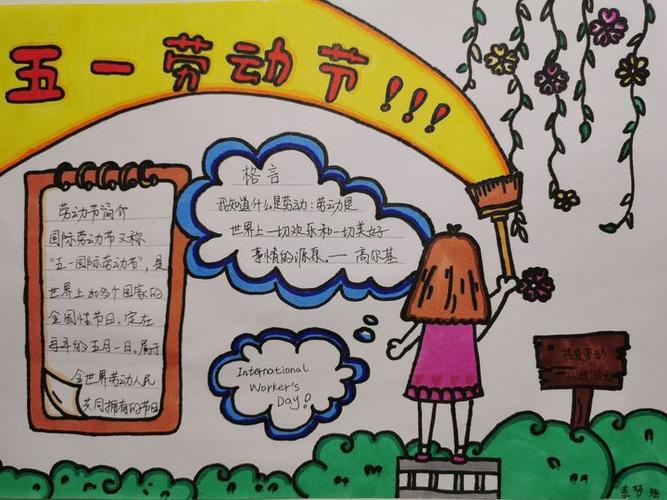 五一劳动节!!!
劳动节简介
国际劳动节又称
“五一国际劳动节”,是
世界上80多个国家的
全国性节日。定在
每年的五月一日。属于
全世界劳动人民
共同拥有的节日
格言
我知道什么是劳动:劳动是
世界上一切欢乐和一切美好
事情的源泉。——高尔基
International
Worker's
Day!
热爱劳动